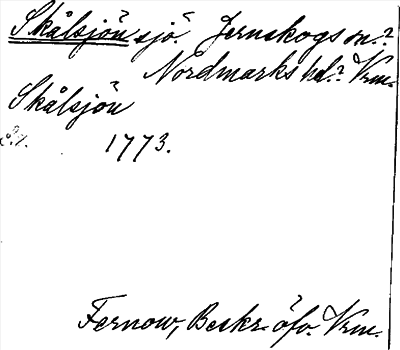 Skålsjön sjö? Jernskogs sn.?
Nordmarks hd.? Vrm.
Skålsjön
1773.
Fernow, Beskr. öfv. Vrm.